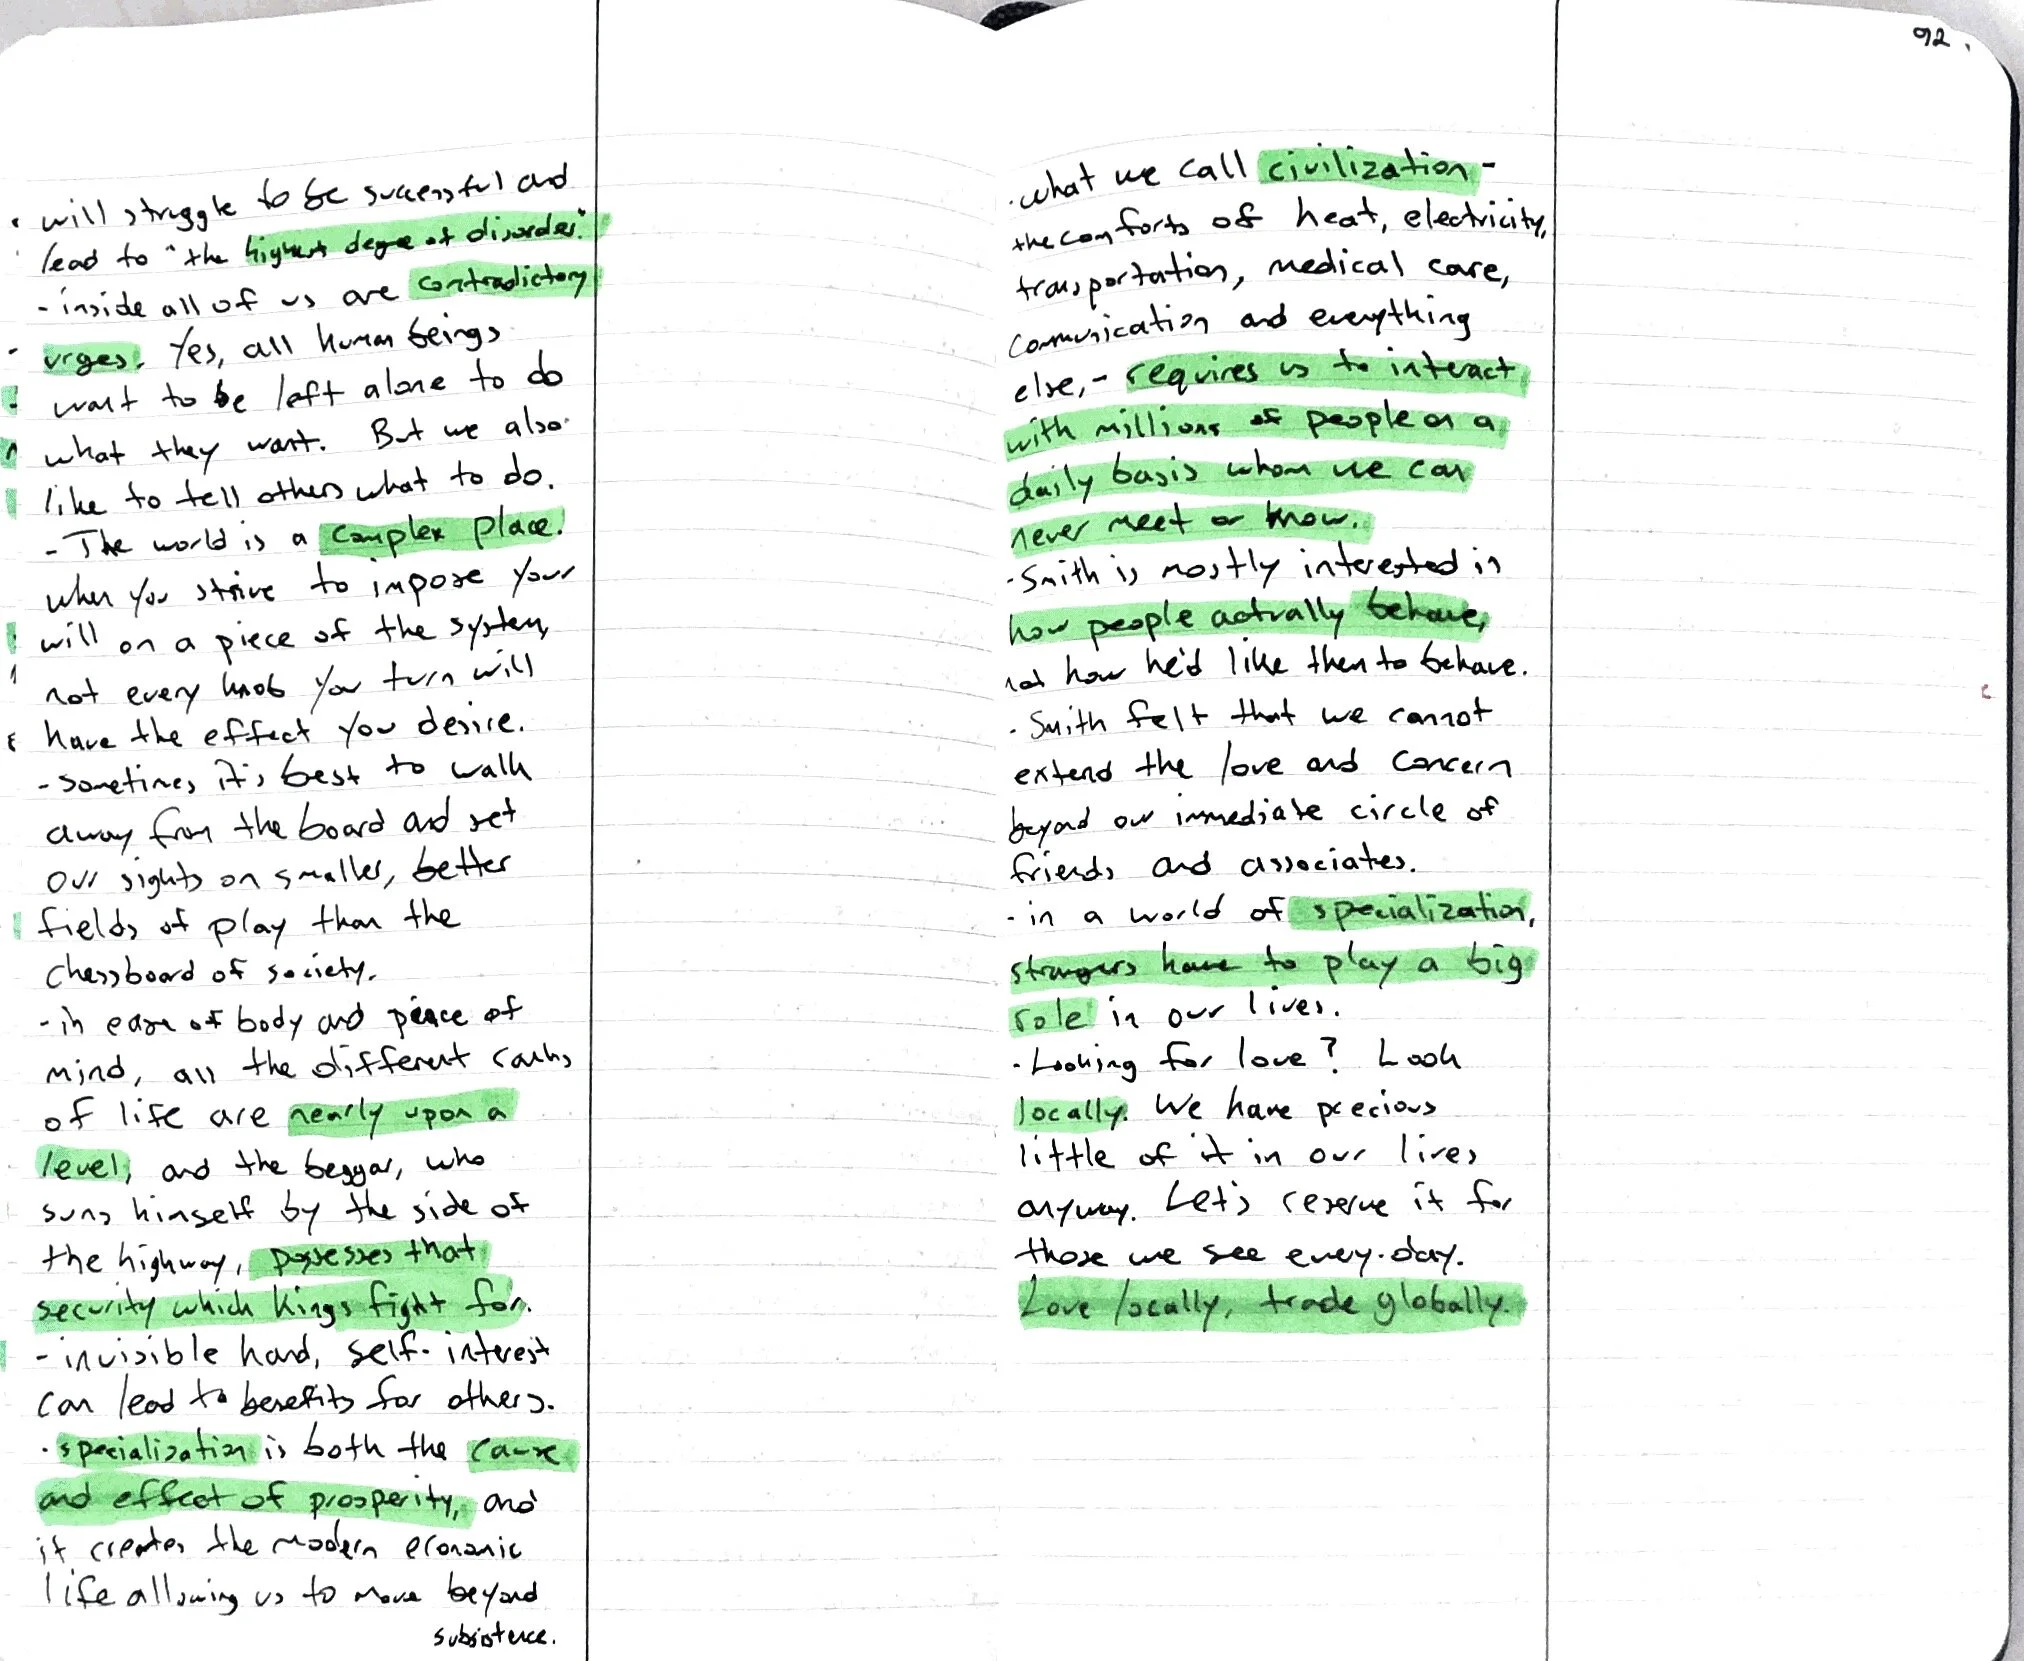 will struggle to be successful and
lead to "the highest degree of disorder."
- inside all of us are contradictory
urges. Yes, all human beings
want to be left alone to do
what they want. But we also
like to tell others what to do.
- The world is a complex place.
when you strive to impose your
will on a piece of the system,
not every knob you turn will
have the effect you desire.
- sometimes it's best to walk
away from the board and set
our sights on smaller, better
fields of play than the
chessboard of society.
- in ease of body and peace of
mind, all the different ranks
of life are nearly upon a
level, and the beggar, who
suns himself by the side of
the highway, possesses that
security which kings fight for.
- invisible hand, self-interest
can lead to benefits for others.
- specialization is both the cause
and effect of prosperity, and
it creates the modern economic
life allowing us to move beyond
subsistence.
92.
- what we call civilization -
the comforts of heat, electricity,
transportation, medical care,
communication and everything
else, - requires us to interact
with millions of people on a
daily basis whom we can
never meet or know.
- Smith is mostly interested in
how people actually behave,
not how he'd like them to behave.
- Smith felt that we cannot
extend the love and concern
beyond our immediate circle of
friends and associates.
- in a world of specialization,
strangers have to play a big
role in our lives.
- Looking for love? Look
locally. We have precious
little of it in our lives
anyway. Let's reserve it for
those we see every-day.
Love locally, trade globally.